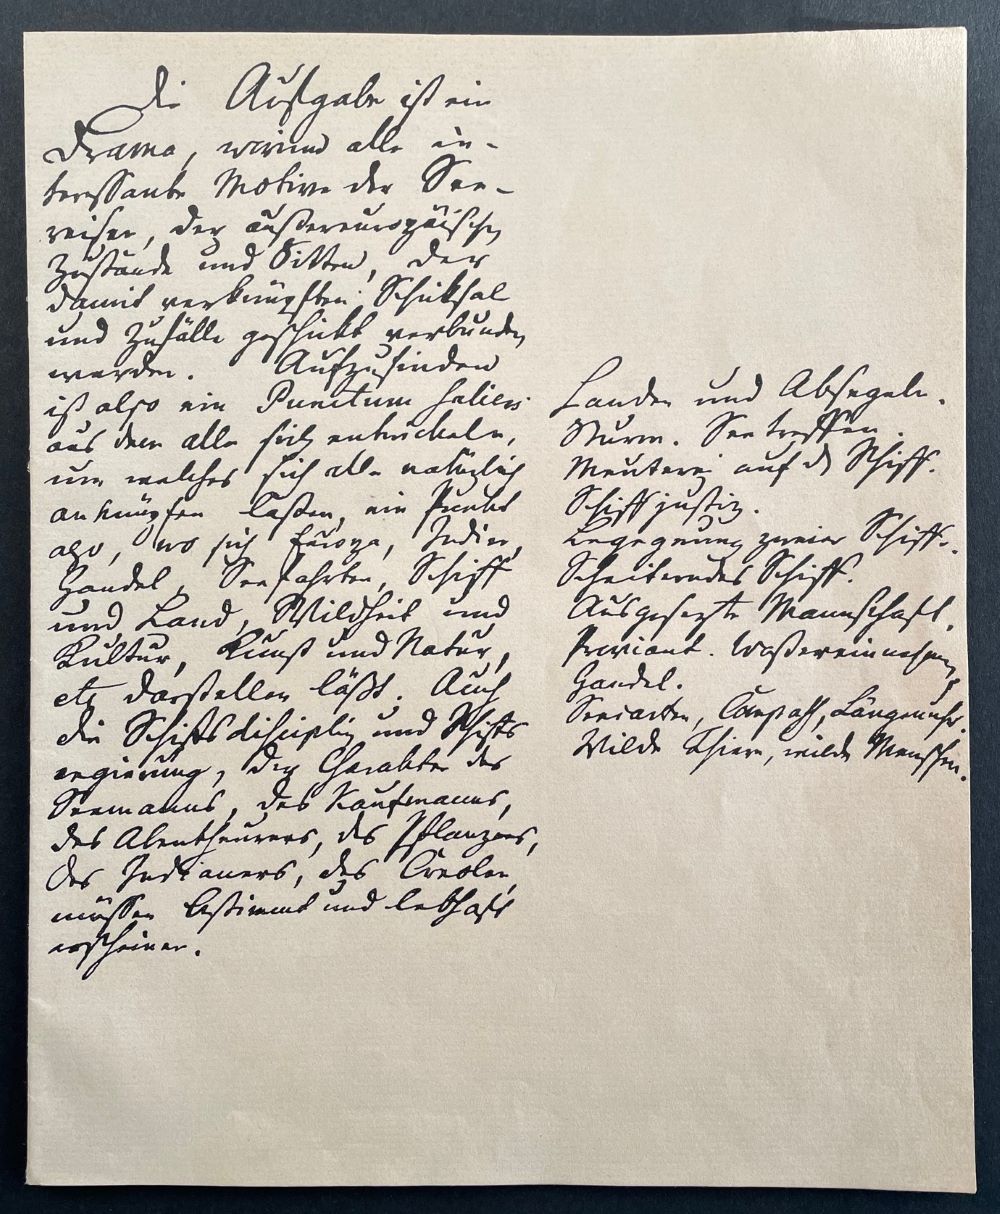 Die Aufgabe ist ein
Drama, worinn alle in-
teressante Motive der See-
reisen, der außereuropäischen
Zustände und Sitten, der
damit verknüpften Schicksale
und Zufälle geschickt verbunden
werden. Aufzufinden
ist also ein Punctum saliens
aus dem alle sich entwickeln,
um welches sich alle natürlich
anknüpfen laßen, ein Punkt
also, wo sich Europa, Indien,
Handel, Seefahrten, Schiff
und Land, Wildheit und
Kultur, Kunst und Natur,
etc darstellen läßt. Auch
die Schiffsdisciplin und Schiffs
regierung, der Charakter des
Seemanns, des Kaufmanns,
des Abentheurers, des Pflanzers,
des Indianers, des Creolen
müssen bestimmt und lebhaft
erscheinen.
Landen und Absegeln.
Sturm. Seetreffen.
Meuterei auf d Schiff.
Schiffsjustiz.
Begegnung zweier Schiffe.
Scheiterndes Schiff.
Ausgesezte Mannschaft.
Proviant. Waßereinnehmen,
Handel.
Seecarten, Compaß, Längenuhr.
Wilde Thiere, wilde Menschen.